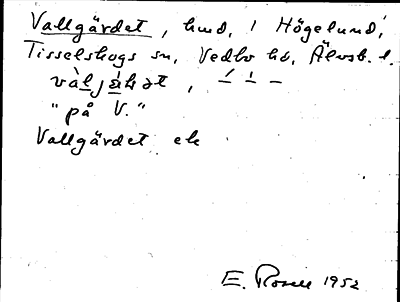 Vallgärdet, hmd, i Högelund,
Tisselskogs sn, Vedbo hd, Älvsb. l.
"på V."
Vallgärdet ek
E. Rosell 1952